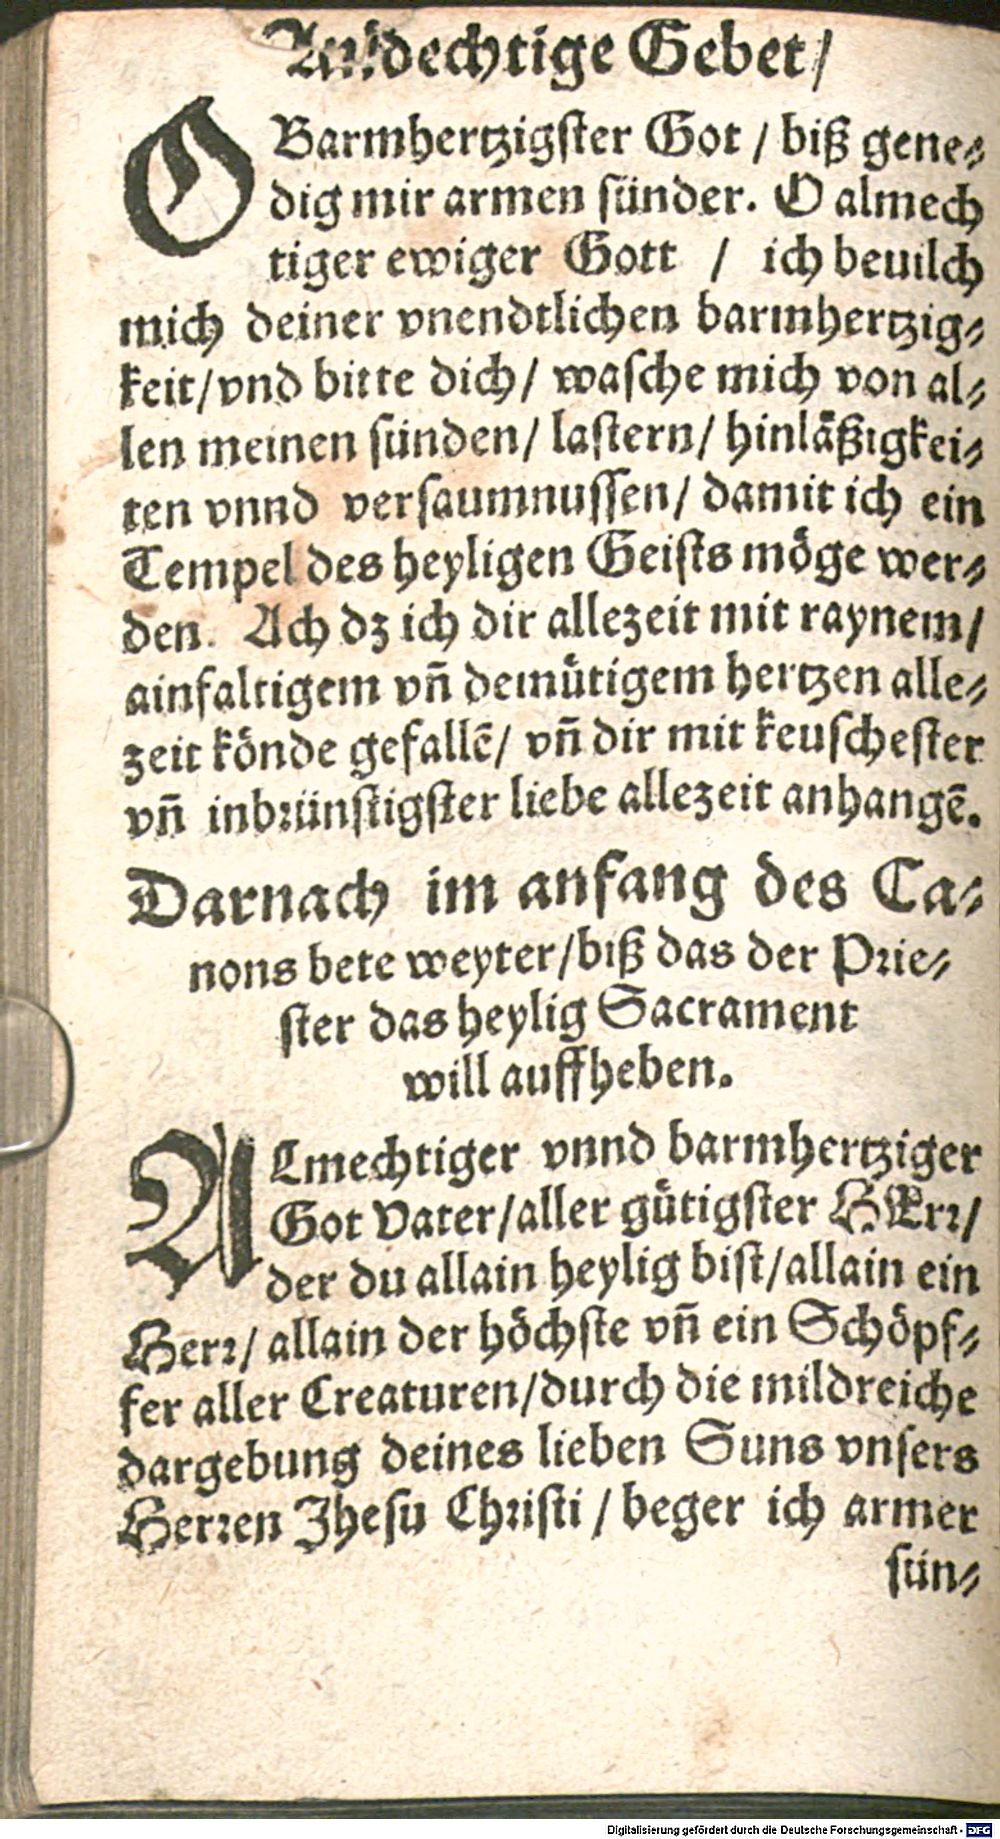 Andechtige Gebet/
O Barmhertzigster Got / biß gene⸗
dig mir armen sünder. O almech
tiger ewiger Gott / ich beuilch
mich deiner vnendtlichen barmhertzig⸗
keit/vnd bitte dich/ wasche mich von al⸗
len meinen sünden/ lastern/ hinläßigkei⸗
ten vnnd versaumnussen/ damit ich ein
Tempel des heyligen Geists möge wer⸗
den. Ach dz ich dir allezeit mit raynem/
ainfaltigem vn̄ demütigem hertzen alle⸗
zeit könde gefallē/ vn̄ dir mit keuschester
vn̄ inbrünstigster liebe allezeit anhangē.
Darnach im anfang des Ca⸗
nons bete weyter/biß das der Prie⸗
ster das heylig Sacrament
will auffheben.
ALmechtiger vnnd barmhertziger
Got Vater/aller gütigster HErr/
der du allain heylig bist/allain ein
Herr/ allain der höchste vn̄ ein Schöpf⸗
fer aller Creaturen/durch die mildreiche
dargebung deines lieben Suns vnsers
Herren Jhesu Christi / beger ich armer
sün⸗
Digitalisierung gefördert durch die Deutsche Forschungsgemeinschaft - DFG